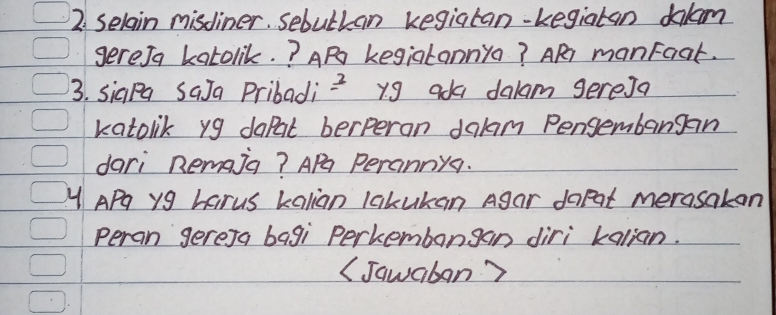 2. selain misdiner. sebutkan kegiatan-kegiatan dalam
gereja katolik.? APa kegiatannya? APa manFaat.
3. siaPa saJa Pribadi-² yg ada dalam gereJa
katolik yg daPat berPeran dalam Pengembangan
dari RemaJa? APa Perannya.
4 APa yg harus kalian lakukan Agar daPat merasakan
Peran gereJa bagi Perkembangan diri kalian.
<Jawaban>